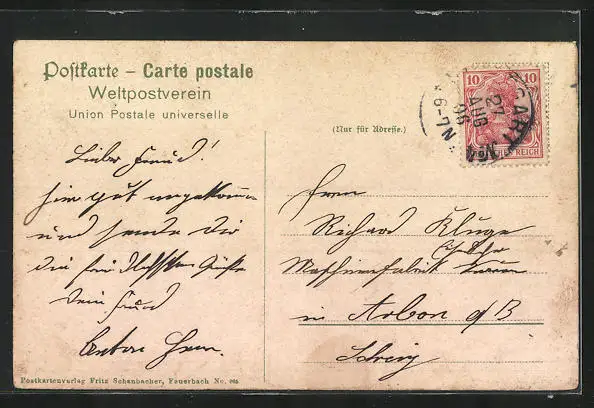 Postkarte – Carte postale
Weltpostverein
Union Postale universelle
(Nur für Adresse.)
10 10
27
AUG
06
6-7 N
REICH
Lieber Freund!
hier gut angekommen
und sende Dir
die herzlichsten Grüße
Dein Freund
Anton
Herrn
Richard Kluge
Maschinenfabrik
in Arbon a/B
Schweiz
Postkartenverlag Fritz Schenbacher, Feuerbach No.